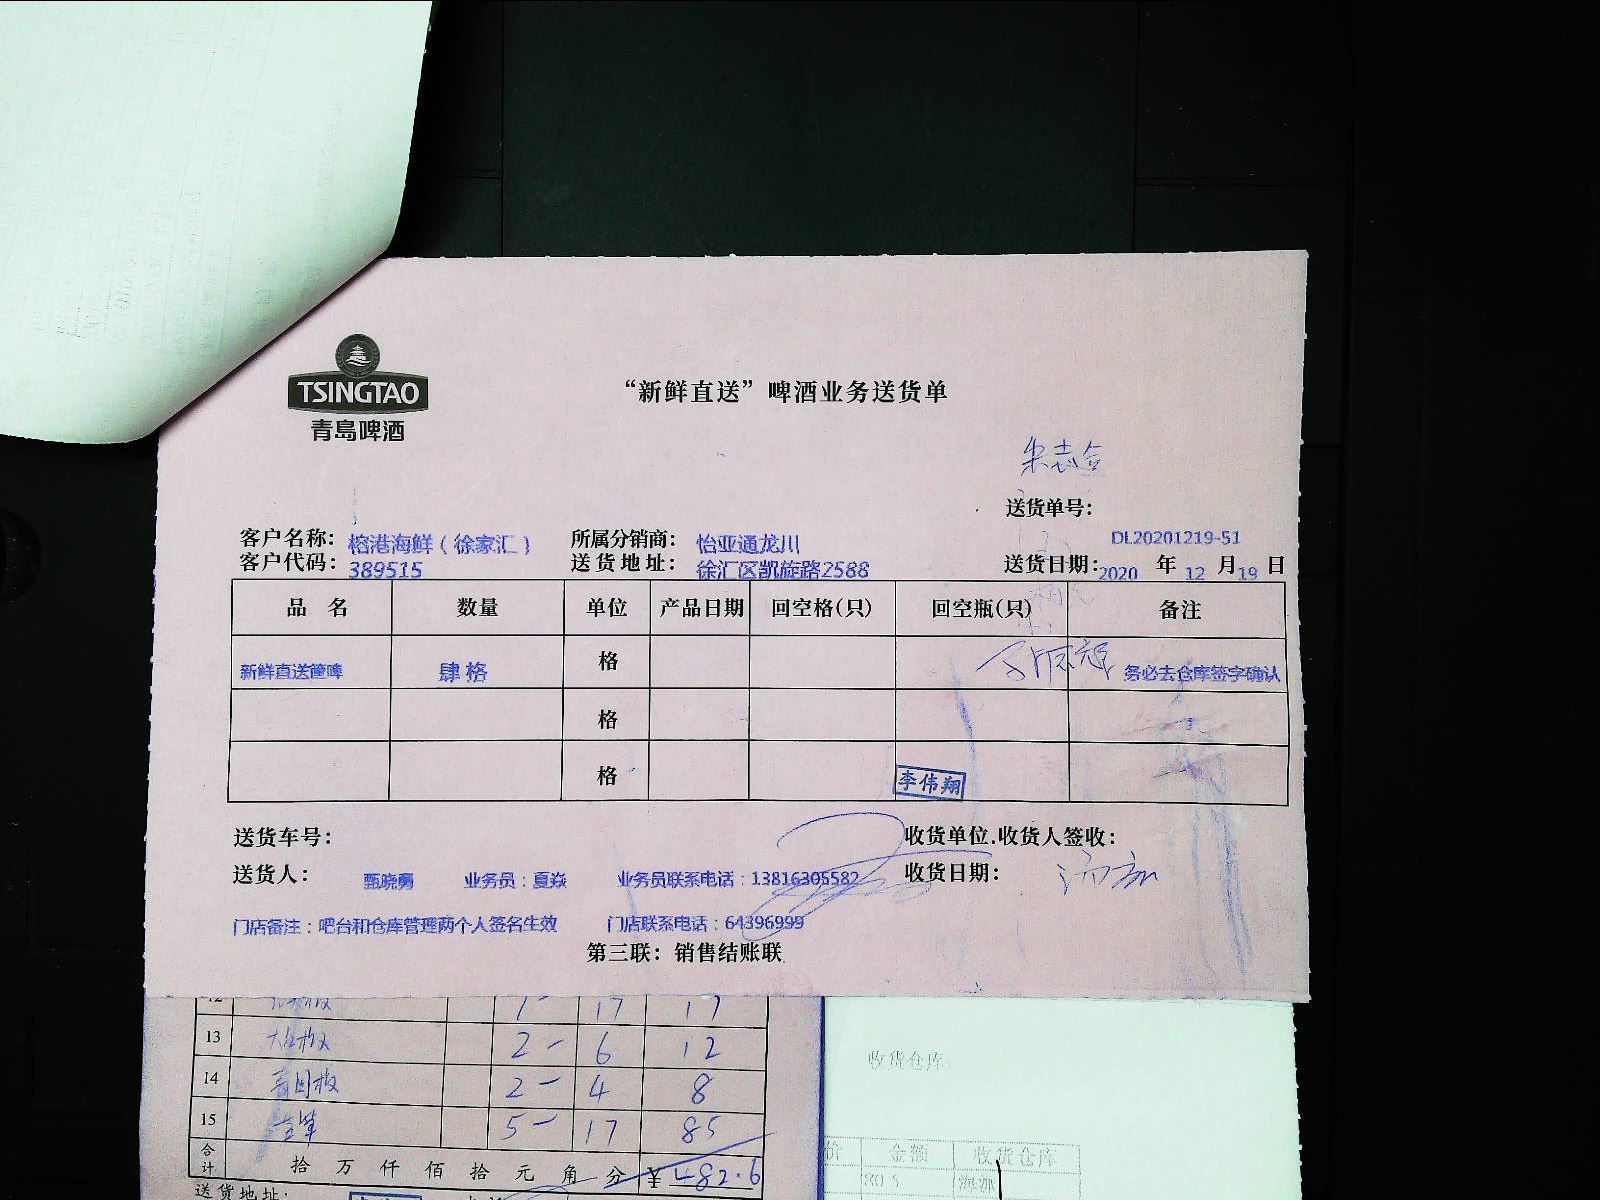 TSINGTAO
青島啤酒
“新鲜直送”啤酒业务送货单
送货单号：
DL20201219-51
客户名称：榕港海鲜（徐家汇） 所属分销商：怡亚通龙川
客户代码：389515 送货地址：徐汇区凯旋路2588 送货日期：2020 年 12 月 19 日
品 名 数量 单位 产品日期 回空格(只) 回空瓶(只) 备注
新鲜直送箧啤 肆格 格 务必去仓库签字确认
格
格 李伟翔
送货车号： 收货单位.收货人签收：
送货人： 甄晓勇 业务员：夏焱 业务员联系电话：13816305582 收货日期：
门店备注：吧台和仓库管理两个人签名生效 门店联系电话：64396999
第三联：销售结账联
12 1- 17 17
13 2- 6 12
14 2- 4 8
15 5- 17 85
合计 拾 万 仟 佰 拾 元 角 分 ¥ 482.6
送货地址:
收货仓库
价 金额 收货仓库
80.5